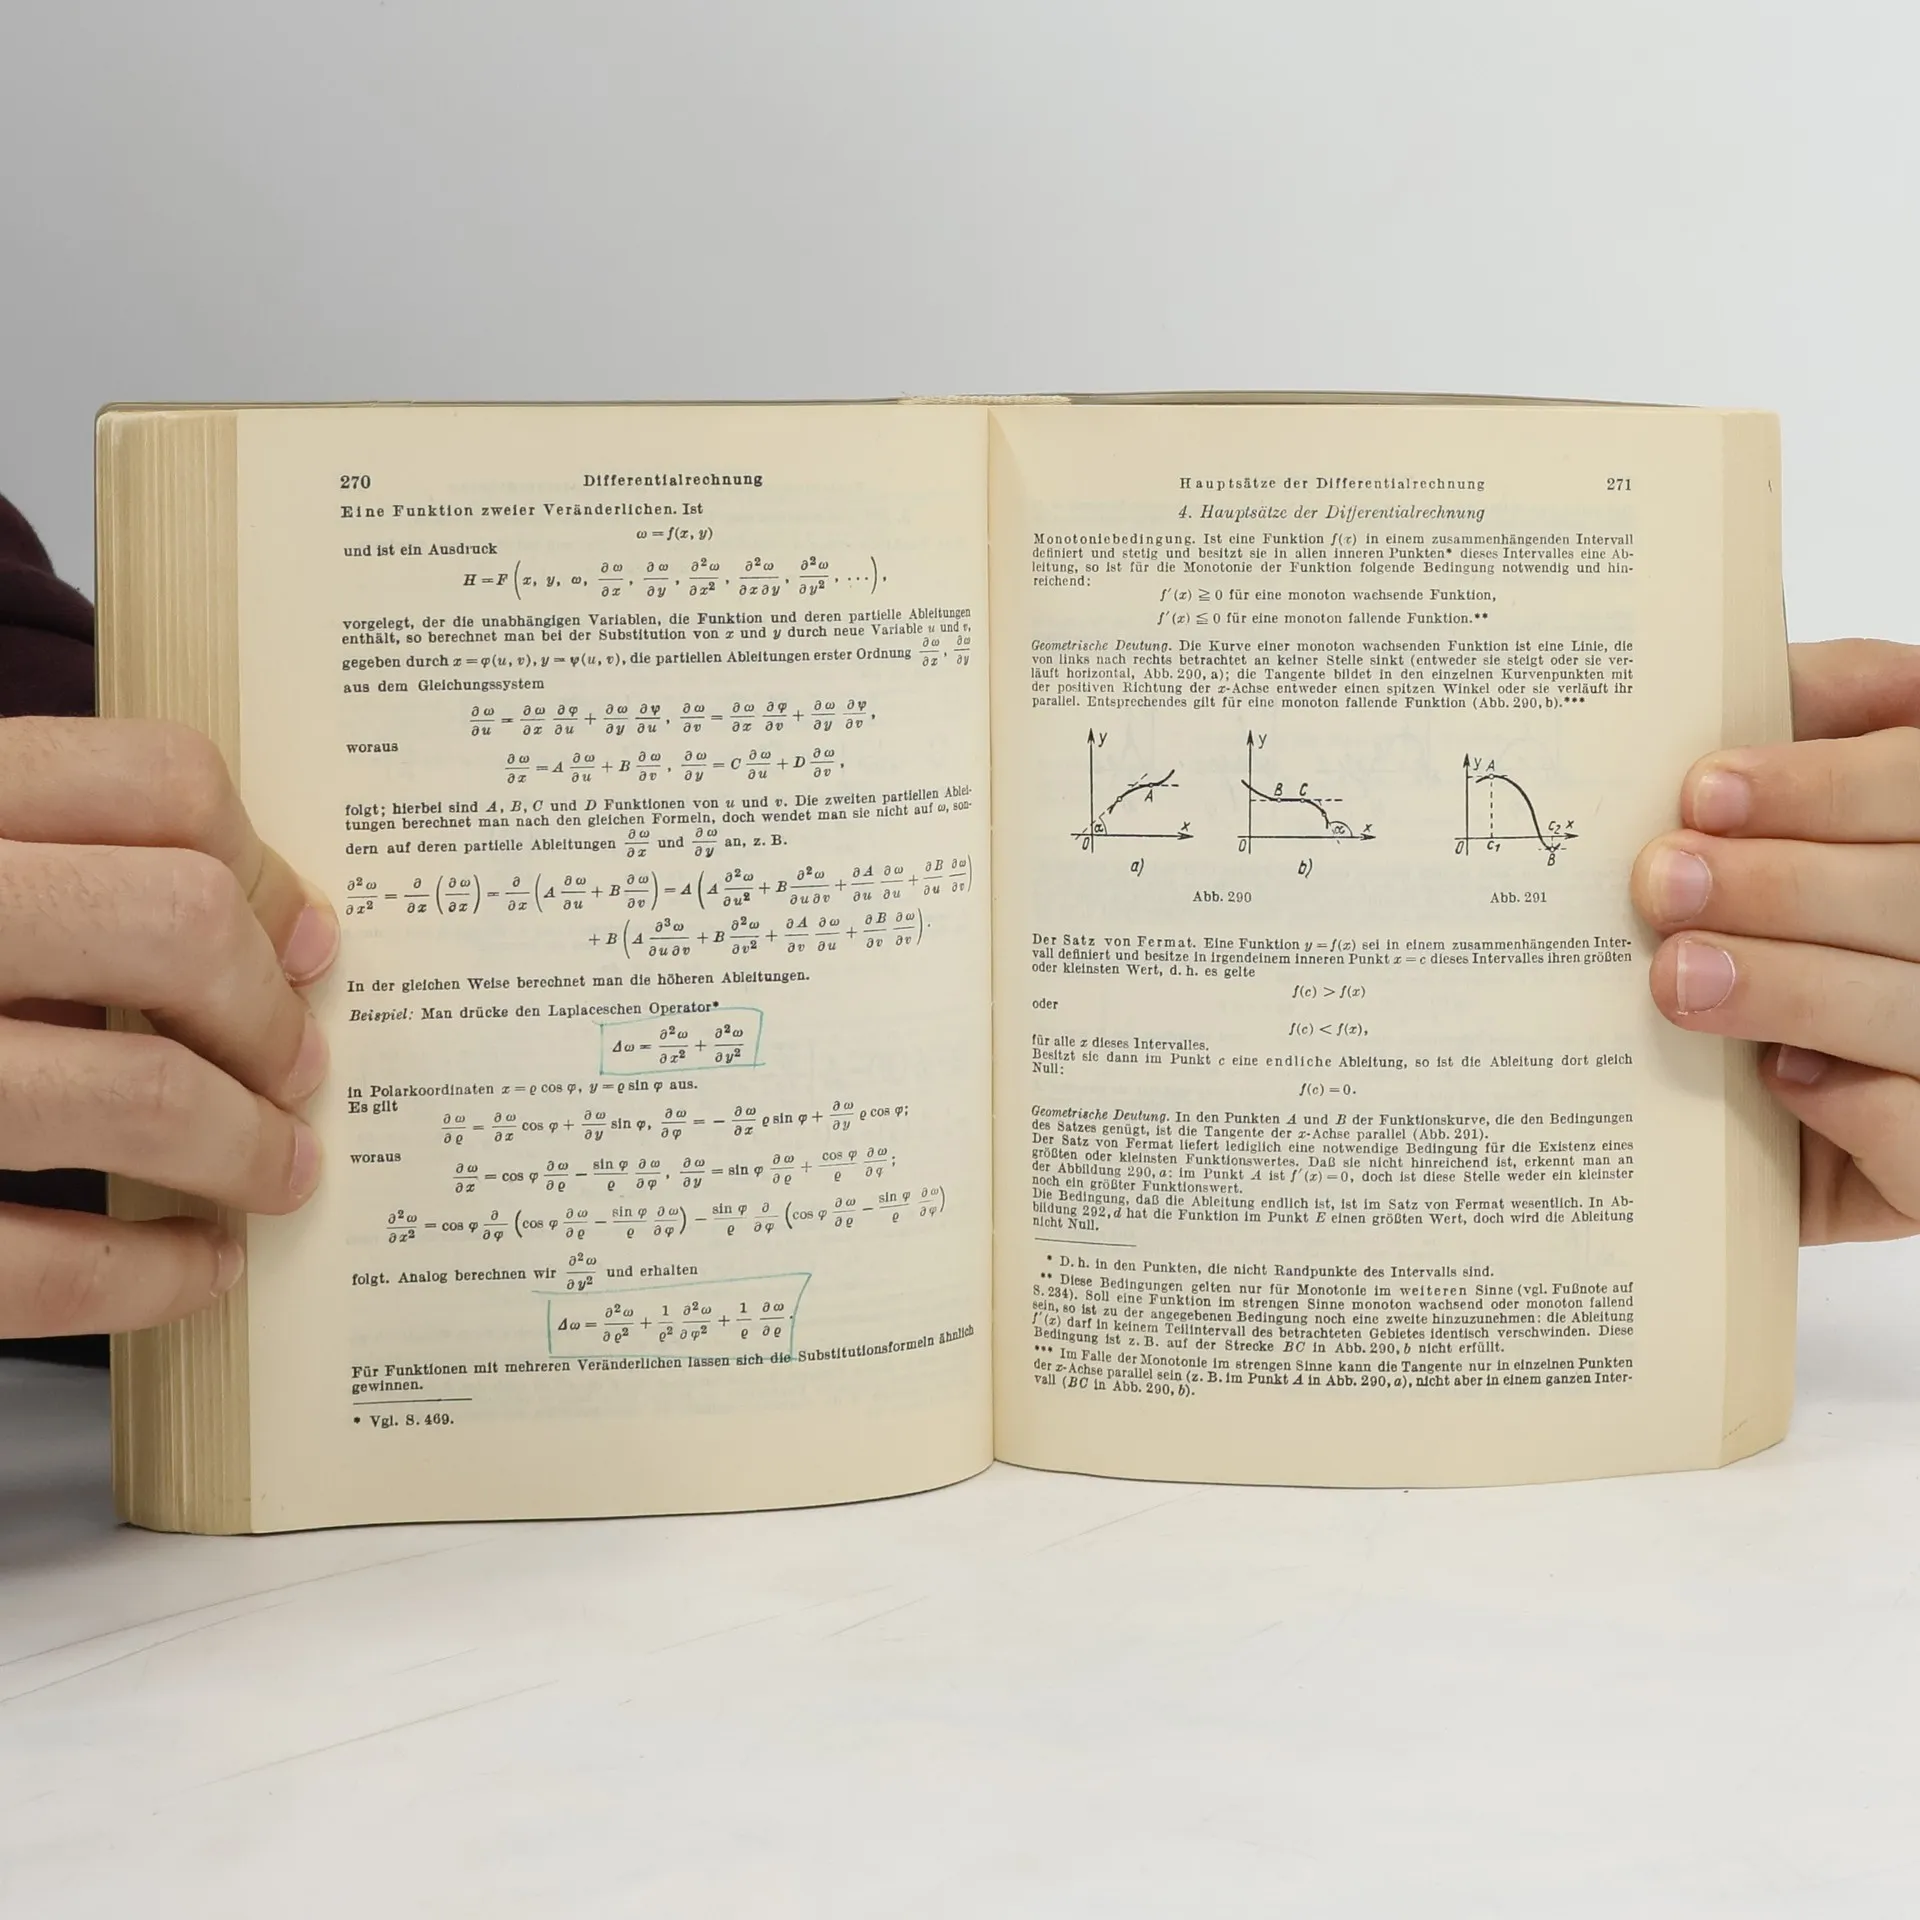 270 Differentialrechnung
Eine Funktion zweier Veränderlichen. Ist
ω = f(x, y)
und ist ein Ausdruck
H = F (x, y, ω, ∂ω/∂x, ∂ω/∂y, ∂²ω/∂x², ∂²ω/∂x∂y, ∂²ω/∂y², ...),
vorgelegt, der die unabhängigen Variablen, die Funktion und deren partielle Ableitungen
enthält, so berechnet man bei der Substitution von x und y durch neue Variable u und v,
gegeben durch x = φ(u, v), y = ψ(u, v), die partiellen Ableitungen erster Ordnung ∂ω/∂x, ∂ω/∂y
aus dem Gleichungssystem
∂ω/∂u = ∂ω/∂x ∂φ/∂u + ∂ω/∂y ∂ψ/∂u, ∂ω/∂v = ∂ω/∂x ∂φ/∂v + ∂ω/∂y ∂ψ/∂v,
woraus
∂ω/∂x = A ∂ω/∂u + B ∂ω/∂v, ∂ω/∂y = C ∂ω/∂u + D ∂ω/∂v,
folgt; hierbei sind A, B, C und D Funktionen von u und v. Die zweiten partiellen Ablei-
tungen berechnet man nach den gleichen Formeln, doch wendet man sie nicht auf ω, son-
dern auf deren partielle Ableitungen ∂ω/∂x und ∂ω/∂y an, z. B.
∂²ω/∂x² = ∂/∂x (∂ω/∂x) = ∂/∂x (A ∂ω/∂u + B ∂ω/∂v) = A (A ∂²ω/∂u² + B ∂²ω/∂u∂v + ∂A/∂u ∂ω/∂u + ∂B/∂u ∂ω/∂v)
+ B (A ∂³ω/∂u∂v + B ∂²ω/∂v² + ∂A/∂v ∂ω/∂u + ∂B/∂v ∂ω/∂v).
In der gleichen Weise berechnet man die höheren Ableitungen.
Beispiel: Man drücke den Laplaceschen Operator*
Δω = ∂²ω/∂x² + ∂²ω/∂y²
in Polarkoordinaten x = ϱ cos φ, y = ϱ sin φ aus.
Es gilt
∂ω/∂ϱ = ∂ω/∂x cos φ + ∂ω/∂y sin φ, ∂ω/∂φ = − ∂ω/∂x ϱ sin φ + ∂ω/∂y ϱ cos φ;
woraus
∂ω/∂x = cos φ ∂ω/∂ϱ − sin φ/ϱ ∂ω/∂φ, ∂ω/∂y = sin φ ∂ω/∂ϱ + cos φ/ϱ ∂ω/∂φ;
∂²ω/∂x² = cos φ ∂/∂φ (cos φ ∂ω/∂ϱ − sin φ/ϱ ∂ω/∂φ) − sin φ/ϱ ∂/∂φ (cos φ ∂ω/∂ϱ − sin φ/ϱ ∂ω/∂φ)
folgt. Analog berechnen wir ∂²ω/∂y² und erhalten
Δω = ∂²ω/∂ϱ² + 1/ϱ² ∂²ω/∂φ² + 1/ϱ ∂ω/∂ϱ.
Für Funktionen mit mehreren Veränderlichen lassen sich die Substitutionsformeln ähnlich
gewinnen.
* Vgl. S. 469.
Hauptsätze der Differentialrechnung 271
4. Hauptsätze der Differentialrechnung
Monotoniebedingung. Ist eine Funktion f(x) in einem zusammenhängenden Intervall
definiert und stetig und besitzt sie in allen inneren Punkten* dieses Intervalles eine Ab-
leitung, so ist für die Monotonie der Funktion folgende Bedingung notwendig und hin-
reichend:
f′(x) ≧ 0 für eine monoton wachsende Funktion,
f′(x) ≦ 0 für eine monoton fallende Funktion.**
Geometrische Deutung. Die Kurve einer monoton wachsenden Funktion ist eine Linie, die
von links nach rechts betrachtet an keiner Stelle sinkt (entweder sie steigt oder sie ver-
läuft horizontal, Abb. 290, a); die Tangente bildet in den einzelnen Kurvenpunkten mit
der positiven Richtung der x-Achse entweder einen spitzen Winkel oder sie verläuft ihr
parallel. Entsprechendes gilt für eine monoton fallende Funktion (Abb. 290, b).***
y A α 0 x a)
y B C α 0 x b)
y A 0 C₁ C₂ x B
Abb. 290 Abb. 291
Der Satz von Fermat. Eine Funktion y = f(x) sei in einem zusammenhängenden Inter-
vall definiert und besitze in irgendeinem inneren Punkt x = c dieses Intervalles ihren größten
oder kleinsten Wert, d. h. es gelte
f(c) > f(x)
oder
f(c) < f(x),
für alle x dieses Intervalles.
Besitzt sie dann im Punkt c eine endliche Ableitung, so ist die Ableitung dort gleich
Null:
f(c) = 0.
Geometrische Deutung. In den Punkten A und B der Funktionskurve, die den Bedingungen
des Satzes genügt, ist die Tangente der x-Achse parallel (Abb. 291).
Der Satz von Fermat liefert lediglich eine notwendige Bedingung für die Existenz eines
größten oder kleinsten Funktionswertes. Daß sie nicht hinreichend ist, erkennt man an
der Abbildung 290, a: im Punkt A ist f′(x) = 0, doch ist diese Stelle weder ein kleinster
noch ein größter Funktionswert.
Die Bedingung, daß die Ableitung endlich ist, ist im Satz von Fermat wesentlich. In Ab-
bildung 292, d hat die Funktion im Punkt E einen größten Wert, doch wird die Ableitung
nicht Null.
* D. h. in den Punkten, die nicht Randpunkte des Intervalls sind.
** Diese Bedingungen gelten nur für Monotonie im weiteren Sinne (vgl. Fußnote auf
S. 234). Soll eine Funktion im strengen Sinne monoton wachsend oder monoton fallend
sein, so ist zu der angegebenen Bedingung noch eine zweite hinzuzunehmen: die Ableitung
f′(x) darf in keinem Teilintervall des betrachteten Gebietes identisch verschwinden. Diese
Bedingung ist z. B. auf der Strecke BC in Abb. 290, b nicht erfüllt.
*** Im Falle der Monotonie im strengen Sinne kann die Tangente nur in einzelnen Punkten
der x-Achse parallel sein (z. B. im Punkt A in Abb. 290, a), nicht aber in einem ganzen Inter-
vall (BC in Abb. 290, b).